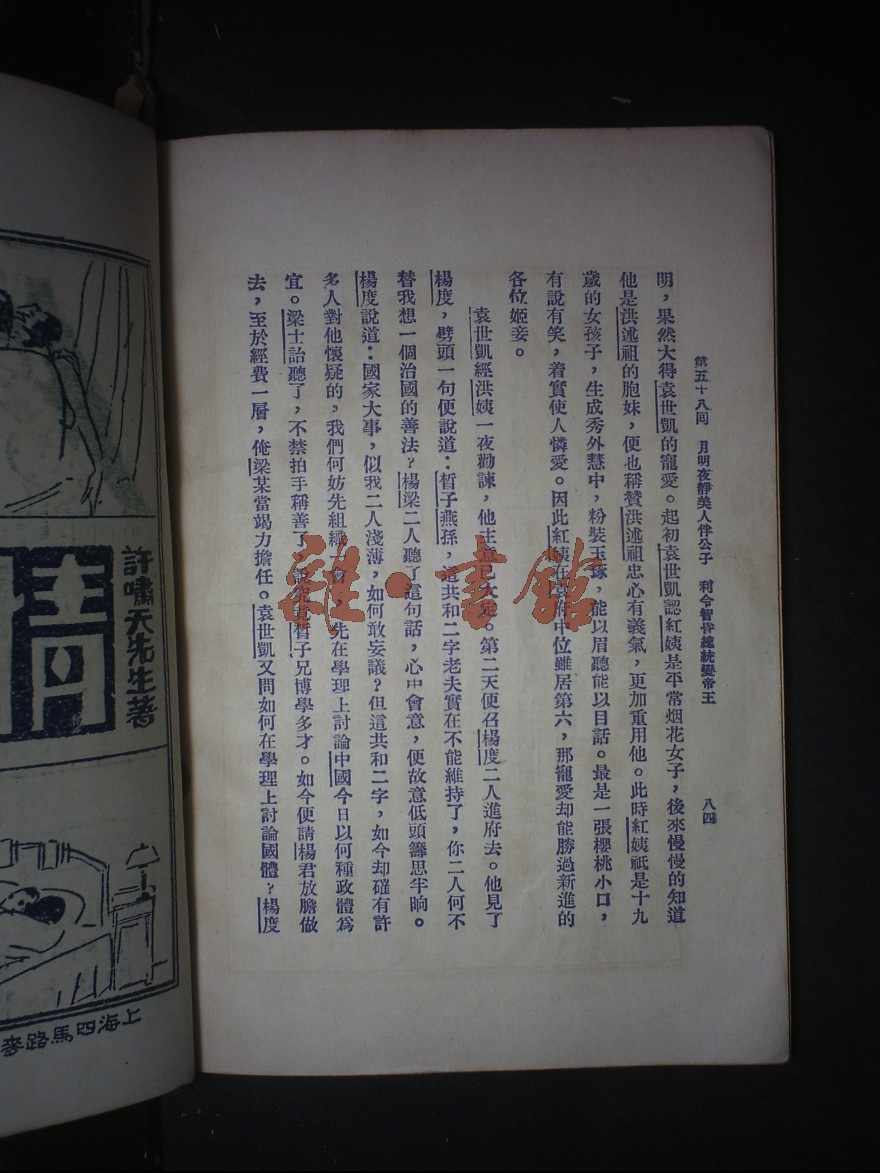 第五十八回　月明夜靜美人伴公子　利令智昏總統變帝王
八四
明，果然大得袁世凱的寵愛。起初袁世凱認紅姨是平常烟花女子，後來慢慢的知道
他是洪述祖的胞妹，便也稱贊洪述祖忠心有義氣，更加重用他。此時紅姨祇是十九
歲的女孩子，生成秀外慧中，粉裝玉琢，能以眉聽能以目話。最是一張櫻桃小口，
有說有笑，着實使人憐愛。因此紅姨在袁府中位雖居第六，那寵愛却能勝過新進的
各位姬妾。
袁世凱經洪姨一夜勸諫，他主意已大定。第二天便召楊度二人進府去。他見了
楊度，劈頭一句便說道：皙子燕孫，這共和二字老夫實在不能維持了，你二人何不
替我想一個治國的善法？楊梁二人聽了這句話，心中會意，便故意低頭籌思半晌。
楊度說道：國家大事，似我二人淺薄，如何敢妄議？但這共和二字，如今却確有許
多人對他懷疑的，我們何妨先組織一會，先在學理上討論中國今日以何種政體爲
宜。梁士詒聽了，不禁拍手稱善了，說究竟皙子兄博學多才。如今便請楊君放膽做
去，至於經費一層，俺梁某當竭力擔任。袁世凱又問如何在學理上討論國體？楊度
雜·書館
許嘯天先生著
清
上海四馬路麥